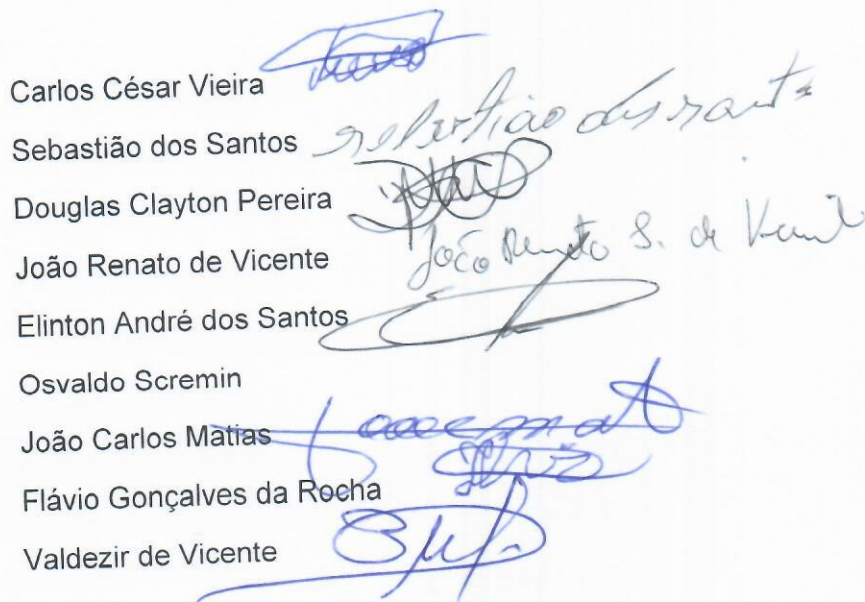 Carlos César Vieira
Sebastião dos Santos sebastião dos santos
Douglas Clayton Pereira
João Renato de Vicente João Renato S. de
Elinton André dos Santos
Osvaldo Scremin
João Carlos Matias
Flávio Gonçalves da Rocha
Valdezir de Vicente